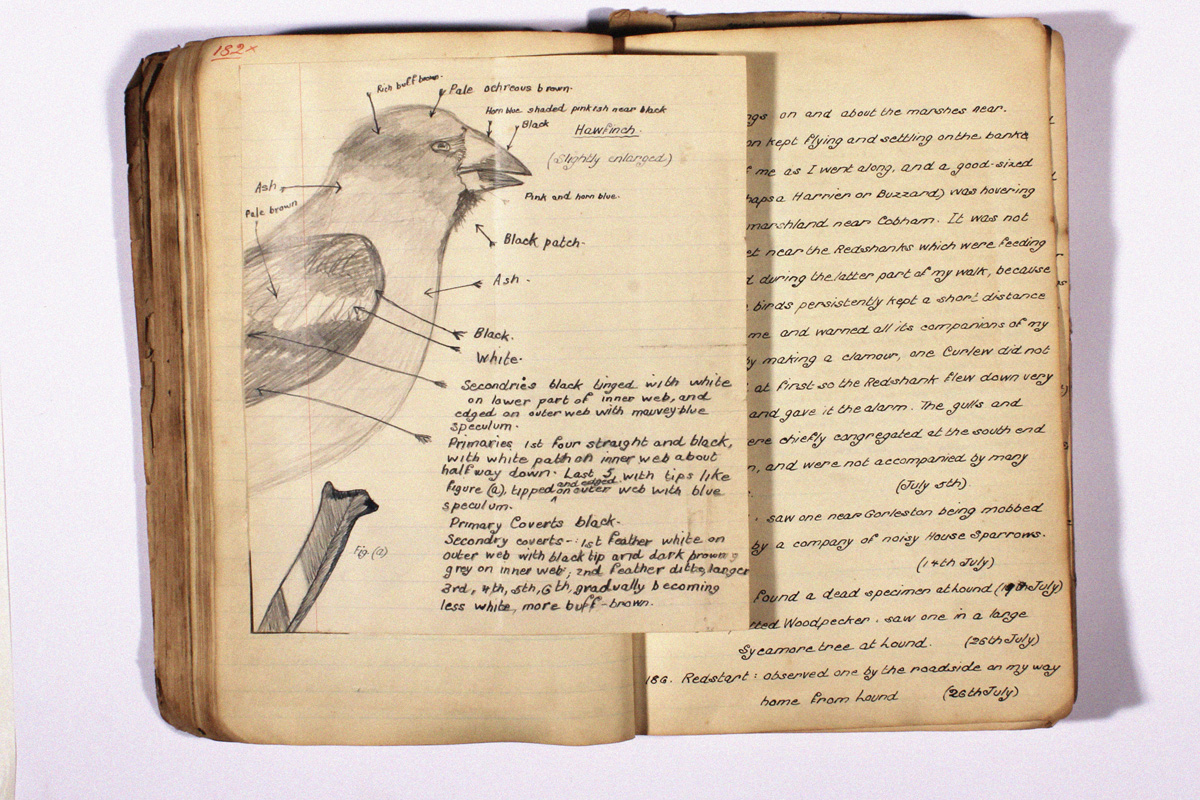 182x
Rich buff brown.
Pale ochreous brown.
Horn blue shaded pinkish near black
Black
Hawfinch.
(Slightly enlarged)
Ash
Pale brown
Pink and horn blue.
Black patch.
Ash.
Black.
White.
Secondries black tinged with white
on lower part of inner web, and
edged on outer web with mauvey blue
speculum.
Primaries 1st four straight and black,
with white patch on inner web about
half way down. Last 5, with tips like
Figure (a), tipped and edged on outer web with blue
speculum.
Primary Coverts black.
Secondry coverts-: 1st feather white on
outer web with black tip and dark brown
grey on inner web; 2nd feather ditto, larger
3rd, 4th, 5th, 6th, gradually becoming
less white, more buff-brown.
Fig. (a)
on and about the marshes near.
kept flying and settling on the banks
me as I went along, and a good-sized
a Harrier or Buzzard) was hovering
marshland near Cobham. It was not
near the Redshanks which were feeding
during the latter part of my walk, because
birds persistently kept a short distance
me and warned all its companions of my
by making a clamour, one Curlew did not
at first so the Redshank flew down very
and gave it the alarm. The gulls and
chiefly congregated at the south end
and were not accompanied by many
(July 5th)
. saw one near Gorleston being mobbed
by a company of noisy House Sparrows.
(14th July)
found a dead specimen at Lound July)
Woodpecker. saw one in a large
Sycamore tree at Lound. (26th July)
186. Redstart: observed one by the roadside on my way
home from Lound (26th July)